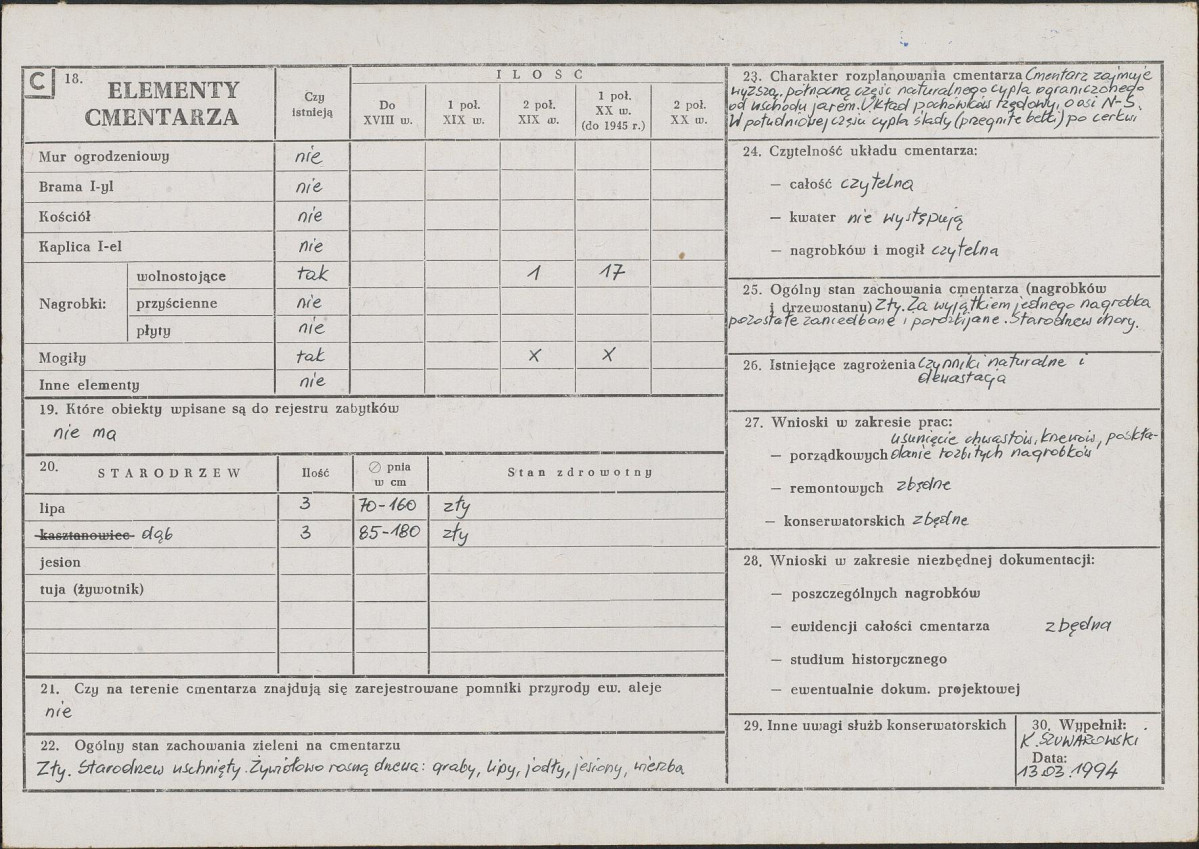 C
18. ELEMENTY CMENTARZA
Czy istnieją
ILOŚĆ
Do XVIII w.
1 poł. XIX w.
2 poł. XIX w.
1 poł. XX w. (do 1945 r.)
2 poł. XX w.
Mur ogrodzeniowy nie
Brama I-yl nie
Kościół nie
Kaplica I-el nie
Nagrobki: wolnostojące tak 1 17
przyścienne nie
płyty nie
Mogiły tak X X
Inne elementy nie
19. Które obiekty wpisane są do rejestru zabytków
nie ma
20. STARODRZEW Ilość ∅ pnia w cm Stan zdrowotny
lipa 3 70-160 zły
kasztanowiec dąb 3 85-180 zły
jesion
tuja (żywotnik)
21. Czy na terenie cmentarza znajdują się zarejestrowane pomniki przyrody ew. aleje
nie
22. Ogólny stan zachowania zieleni na cmentarzu
Zły. Starodrzew uschnięty. Żywiołowo rosną drzewa: graby, lipy, jodły, jesiony, wierzba
23. Charakter rozplanowania cmentarza Cmentarz zajmuje
wyższą, północną część naturalnego cypla ograniczonego
od wschodu jarem. Układ pochówków rzędowy, o osi N-S.
W południowej części cypla ślady (przegniłe belki) po cerkwi
24. Czytelność układu cmentarza:
— całość czytelna
— kwater nie występują
— nagrobków i mogił czytelna
25. Ogólny stan zachowania cmentarza (nagrobków
i drzewostanu) Zły. Za wyjątkiem jednego nagrobka
pozostałe zaniedbane i porozbijane. Starodrzew chory.
26. Istniejące zagrożenia Czynniki naturalne i
dewastacja
27. Wnioski w zakresie prac:
usunięcie chwastów, krzewów, poskła-
— porządkowych danie rozbitych nagrobków
— remontowych zbędne
— konserwatorskich zbędne
28. Wnioski w zakresie niezbędnej dokumentacji:
— poszczególnych nagrobków
— ewidencji całości cmentarza zbędna
— studium historycznego
— ewentualnie dokum. projektowej
29. Inne uwagi służb konserwatorskich
30. Wypełnił:
K. SZUWAROWSKI
Data:
13.03.1994